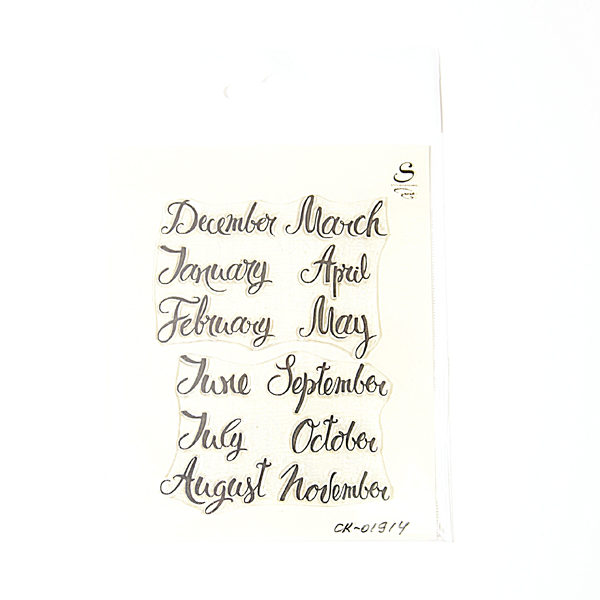 S
December March
January April
February May
June September
July October
August November
CK-01914